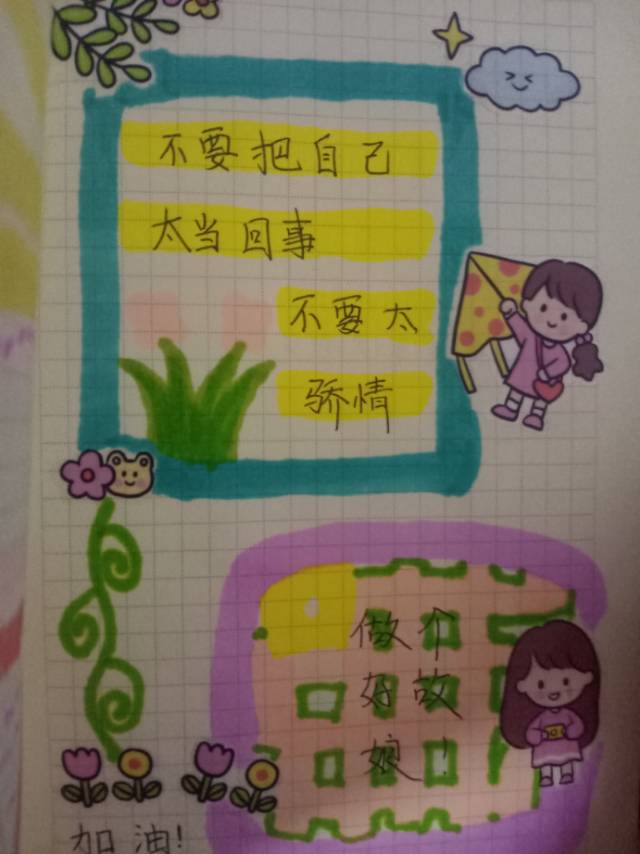 不要把自己
太当回事
不要太
骄情
做个
好故
娘!
加油!